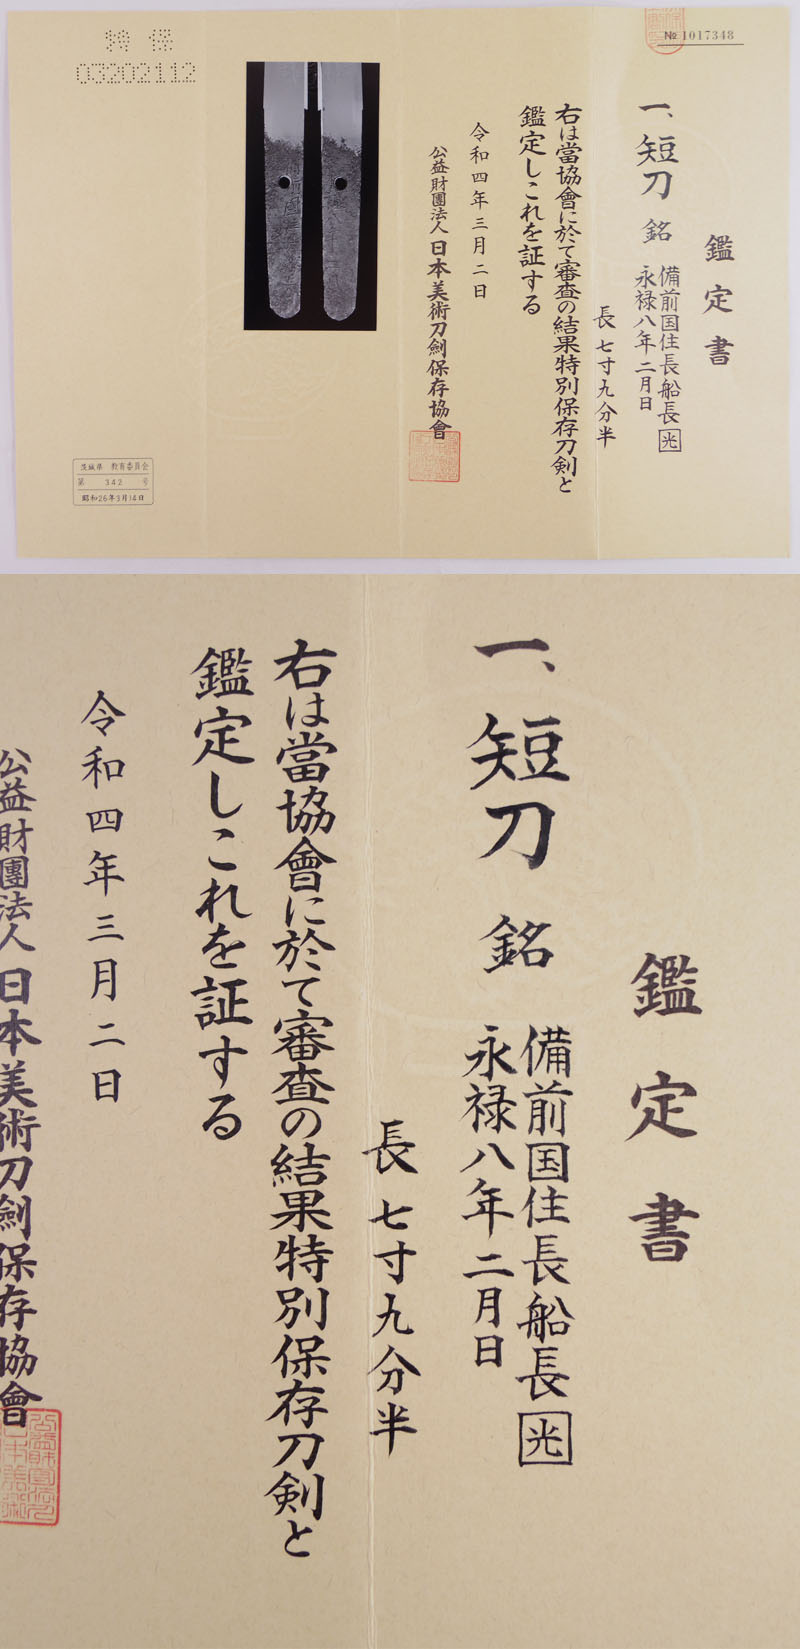 № 1017348
鑑定書
一、短刀 銘 備前国住長船長光
永禄八年二月日
長七寸九分半
右は當協會に於て審査の結果特別保存刀剣と
鑑定しこれを証する
令和四年三月二日
公益財團法人日本美術刀劍保存協會
特保
03202112
茨城県 教育委員会
第 342 号
昭和26年3月14日
鑑定書
一、短刀 銘 備前国住長船長光
永禄八年二月日
長七寸九分半
右は當協會に於て審査の結果特別保存刀剣と
鑑定しこれを証する
令和四年三月二日
公益財團法人日本美術刀劍保存協會